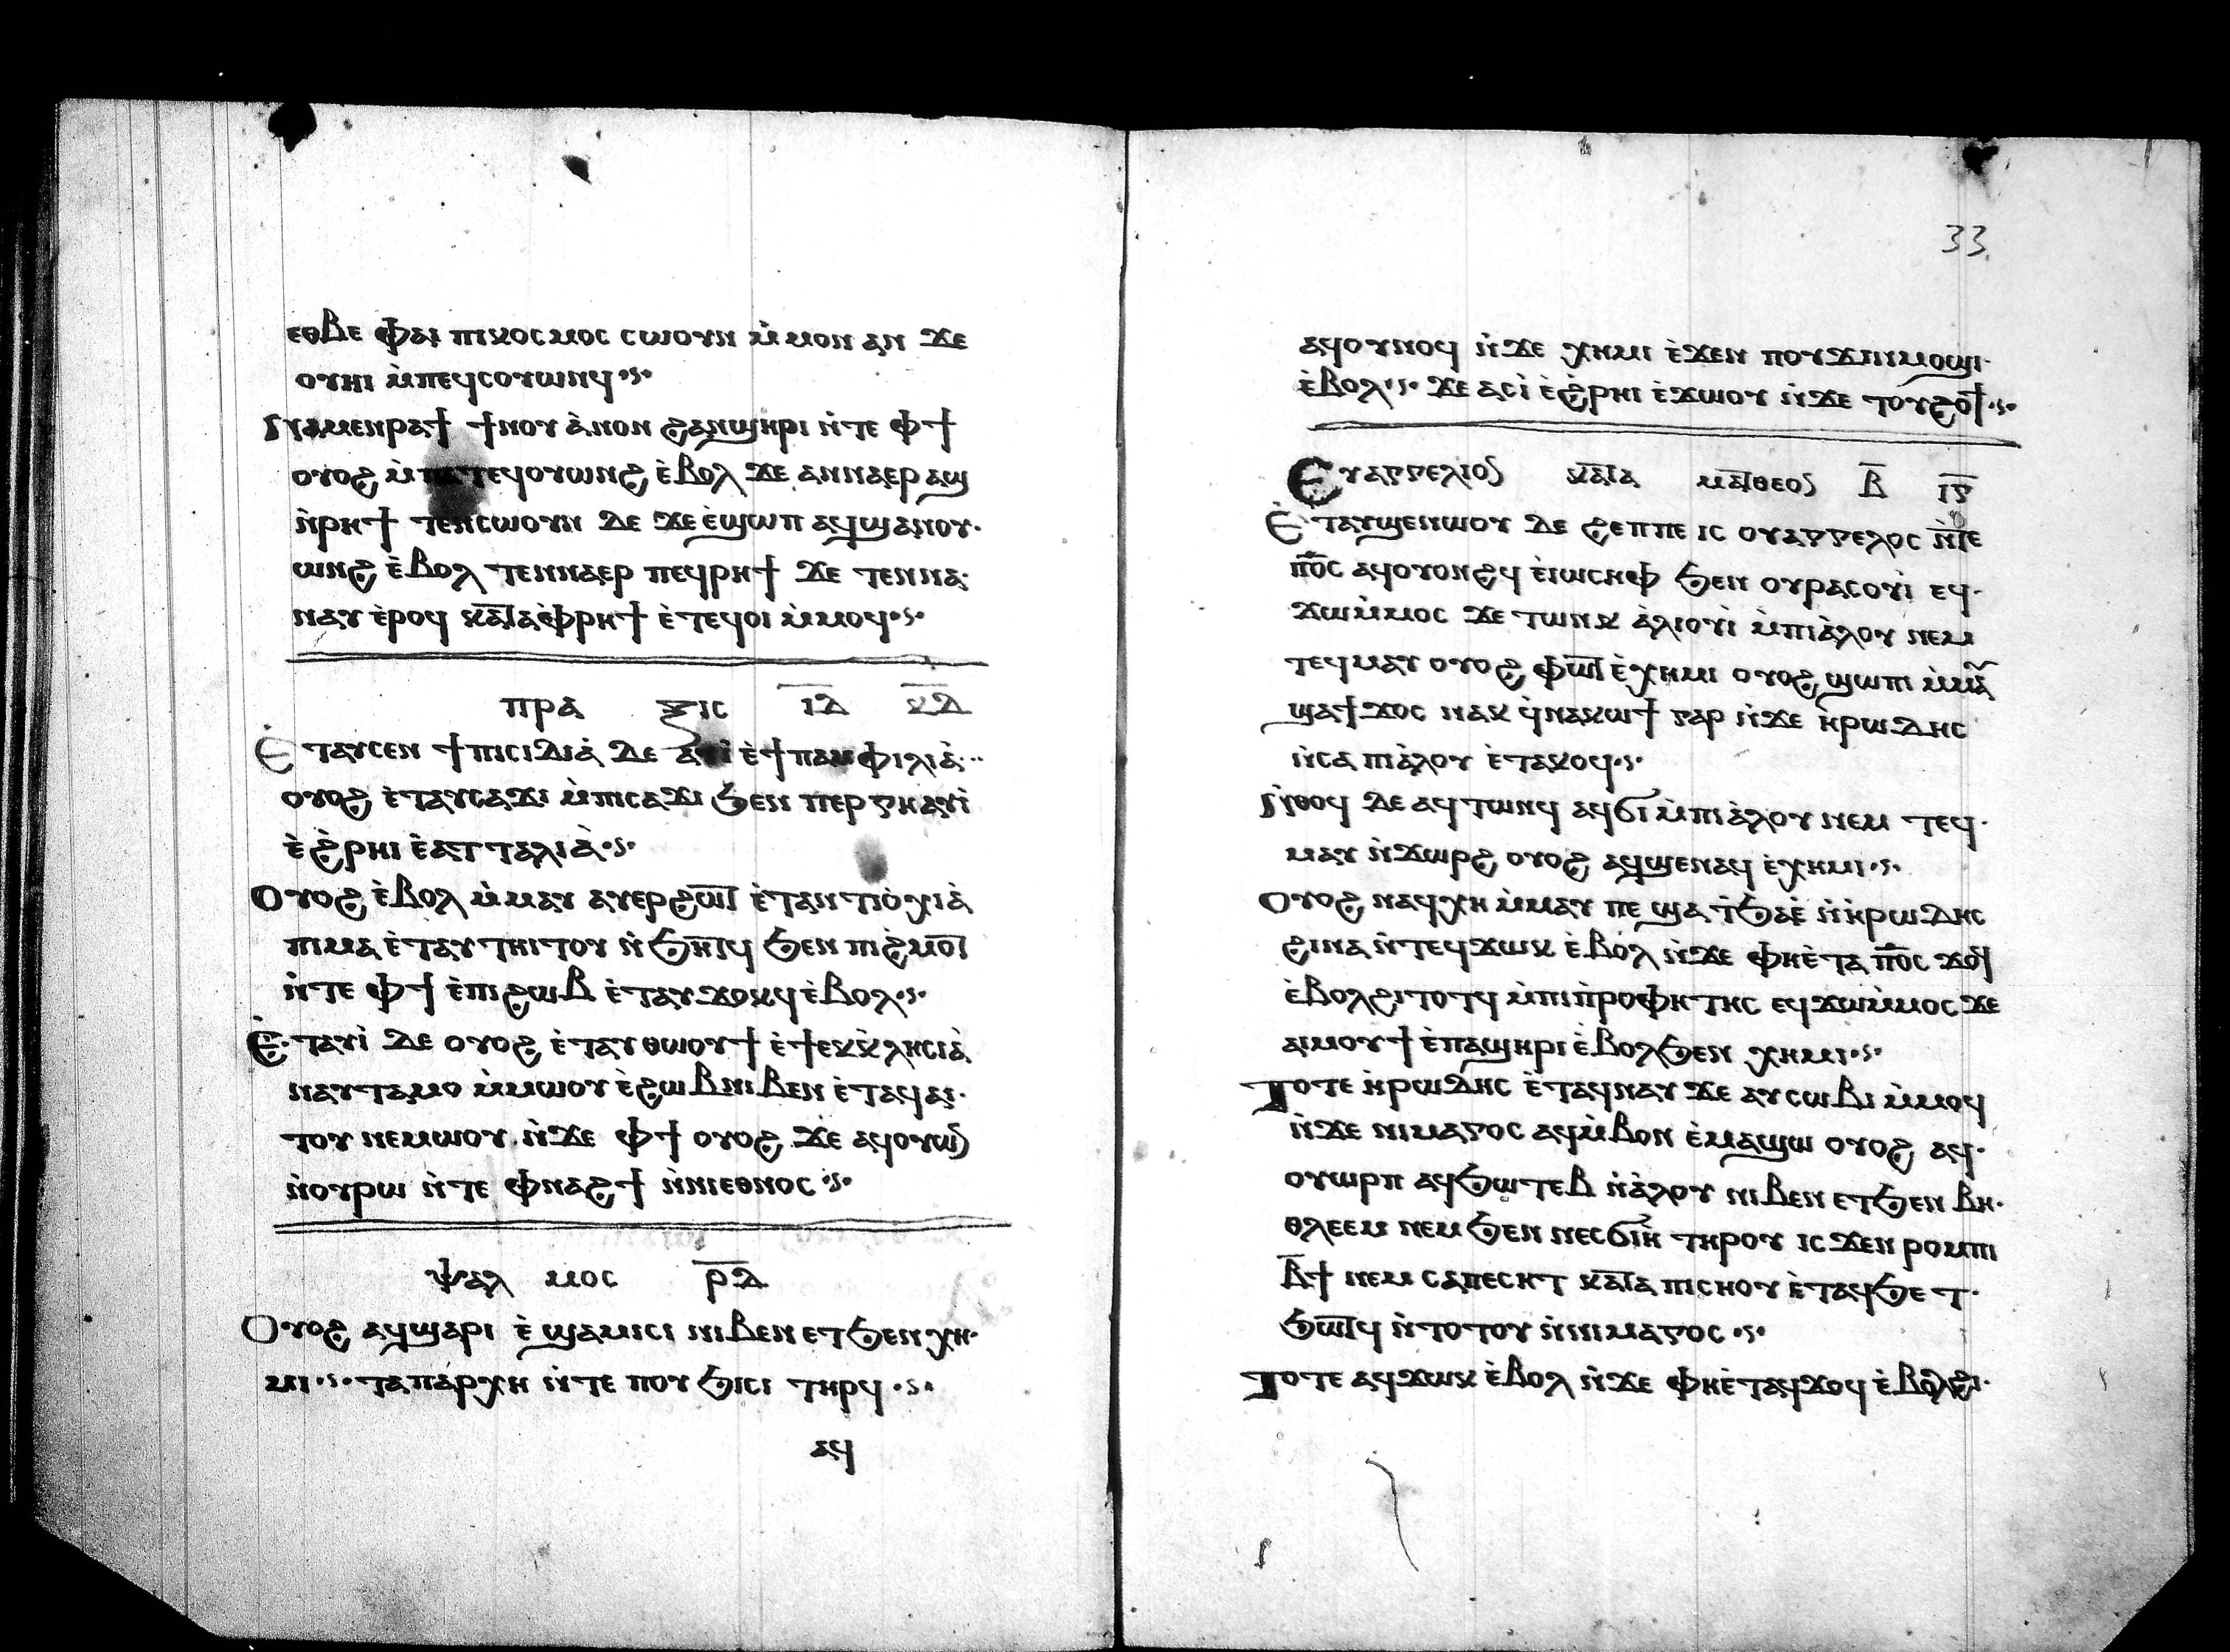 ⲉⲑⲃⲉ ⲫⲁⲓ ⲡⲓⲕⲟⲥⲙⲟⲥ ⲥⲱⲟⲩⲛ ⲙ̀ⲙⲟⲛ ⲁⲛ ϫⲉ
ⲟⲩⲏⲓ ⲙ̀ⲡⲉϥⲥⲟⲩⲱⲛϥ
ⲛⲁⲙⲉⲛⲣⲁϯ ϯⲛⲟⲩ ⲁ̀ⲛⲟⲛ ϩⲁⲛϣⲏⲣⲓ ⲛ̀ⲧⲉ ⲫϯ
ⲟⲩⲟϩ ⲙ̀ⲡⲁⲧⲉϥⲟⲩⲱⲛϩ ⲉ̀ⲃⲟⲗ ϫⲉ ⲁⲛⲛⲁⲉⲣ ⲁϣ
ⲛ̀ⲣⲏϯ ⲧⲉⲛⲥⲱⲟⲩⲛ ⲇⲉ ϫⲉ ⲉ̀ϣⲱⲡ ⲁϥϣⲁⲛⲟⲩ
ⲱⲛϩ ⲉ̀ⲃⲟⲗ ⲧⲉⲛⲛⲁⲉⲣ ⲡⲉϥⲣⲏϯ ϫⲉ ⲧⲉⲛⲛⲁ
ⲛⲁⲩ ⲉ̀ⲣⲟϥ ⲕⲁ̅ⲧ̅ⲁⲫ̀ⲣⲏϯ ⲉ̀ⲧⲉϥⲟⲓ ⲙ̀ⲙⲟϥ
ⲡⲣⲁ ⲝⲓⲥ ⲓ̅ⲇ̅ ⲕ̅ⲇ̅
Ⲉ̀ⲧⲁⲩⲥⲉⲛ ϯⲡⲓⲥⲓⲇⲓⲁ̀ ⲇⲉ ⲁⲩⲓ̀ ⲉ̀ϯⲡⲁⲙⲫⲓⲗⲓⲁ̀
ⲟⲩⲟϩ ⲉ̀ⲧⲁⲩⲥⲁϫⲓ ⲙ̀ⲡⲓⲥⲁϫⲓ ϧⲉⲛ ⲡⲉⲣⲅⲏ ⲁⲩⲓ̀
ⲉ̀ϩ̀ⲣⲏⲓ ⲉ̀ⲁⲧⲧⲁⲗⲓⲁ̀
Ⲟⲩⲟϩ ⲉ̀ⲃⲟⲗ ⲙ̀ⲙⲁⲩ ⲁⲩⲉⲣϩⲱ̅ⲧ̅ ⲉ̀ⲧⲁⲛⲧⲓⲟ̀ⲭⲓⲁ̀
ⲡⲓⲙⲁ ⲉ̀ⲧⲁⲩⲧⲏⲓⲧⲟⲩ ⲛ̀ϧⲏ̅ⲧ̅ϥ ϧⲉⲛ ⲡⲓϩ̀ⲙⲟ̅ⲧ̅
ⲛ̀ⲧⲉ ⲫϯ ⲉ̀ⲡⲓϩⲱⲃ ⲉ̀ⲧⲁⲩϫⲟⲕϥ ⲉ̀ⲃⲟⲗ
Ⲉ̀ⲧⲁⲩⲓ̀ ⲇⲉ ⲟⲩⲟϩ ⲉ̀ⲧⲁⲩⲑⲱⲟⲩϯ ⲉ̀ϯⲉⲕⲕ̀ⲗⲏⲥⲓⲁ̀
ⲛⲁⲩⲧⲁⲙⲟ ⲙ̀ⲙⲱⲟⲩ ⲉ̀ϩⲱⲃ ⲛⲓⲃⲉⲛ ⲉ̀ⲧⲁϥⲁⲓ
ⲧⲟⲩ ⲛⲉⲙⲱⲟⲩ ⲛ̀ϫⲉ ⲫϯ ⲟⲩⲟϩ ϫⲉ ⲁϥⲟⲩⲱⲛ
ⲛ̀ⲟⲩⲣⲱ ⲛ̀ⲧⲉ ⲫ̀ⲛⲁϩϯ ⲛ̀ⲛⲓⲉⲑⲛⲟⲥ
ⲯⲁⲗ ⲙⲟⲥ ⲣ̅ⲇ̅
Ⲟⲩⲟϩ ⲁϥϣⲁⲣⲓ ⲉ̀ϣⲁⲙⲓⲥⲓ ⲛⲓⲃⲉⲛ ⲉⲧϧⲉⲛ ⲭⲏ
ⲙⲓ ⲧⲁⲡⲁⲣⲭⲏ ⲛ̀ⲧⲉ ⲡⲟⲩϧⲓⲥⲓ ⲧⲏⲣϥ
ⲁϥ
33
ⲁϥⲟⲩⲛⲟϥ ⲛ̀ϫⲉ ⲭⲏⲙⲓ ⲉ̀ϫⲉⲛ ⲡⲟⲩϫⲓⲛⲙⲟϣⲓ
ⲉ̀ⲃⲟⲗ ϫⲉ ⲁⲥⲓ̀ ⲉ̀ϩ̀ⲣⲏⲓ ⲉ̀ϫⲱⲟⲩ ⲛ̀ϫⲉ ⲧⲟⲩϩⲟϯ
Ⲉⲩⲁⲅⲅⲉⲗⲓⲟⲛ ⲕⲁ̅ⲧ̅ⲁ ⲙⲁ̅ⲧ̅ⲑⲉⲟⲛ ⲃ̅ ⲓ̅ⲅ̅
Ⲉ̀ⲧⲁⲩϣⲉⲛⲱⲟⲩ ⲇⲉ ϩⲉⲡⲡⲉ ⲓⲥ ⲟⲩⲁⲅⲅⲉⲗⲟⲥ ⲛ̀ⲧⲉ
ⲡ⳪ ⲁϥⲟⲩⲟⲛϩϥ ⲉ̀ⲓⲱⲥⲏⲫ ϧⲉⲛ ⲟⲩⲣⲁⲥⲟⲩⲓ̀ ⲉϥ
ϫⲱⲙ̀ⲙⲟⲥ ϫⲉ ⲧⲱⲛⲕ ⲁ̀ⲗⲓⲟⲩⲓ̀ ⲙ̀ⲡⲓⲁ̀ⲗⲟⲩ ⲛⲉⲙ
ⲧⲉϥⲙⲁⲩ ⲟⲩⲟϩ ⲫⲱ̅ⲧ̅ ⲉ̀ⲭⲏⲙⲓ ⲟⲩⲟϩ ϣⲱⲡⲓ ⲙ̀ⲙⲁⲩ
ϣⲁϯϫⲟⲥ ⲛⲁⲕ ϥ̀ⲛⲁⲕⲱϯ ⲅⲁⲣ ⲛ̀ϫⲉ ⲏ̀ⲣⲱⲇⲏⲥ
ⲛ̀ⲥⲁ ⲡⲓⲁ̀ⲗⲟⲩ ⲉ̀ⲧⲁⲕⲟϥ
Ⲛ̀ⲑⲟϥ ⲇⲉ ⲁϥⲧⲱⲛϥ ⲁϥϭⲓ ⲙ̀ⲡⲓⲁ̀ⲗⲟⲩ ⲛⲉⲙ ⲧⲉϥ
ⲙⲁⲩ ⲛ̀ϫⲱⲣϩ ⲟⲩⲟϩ ⲁϥϣⲉⲛⲁϥ ⲉ̀ⲭⲏⲙⲓ
Ⲟⲩⲟϩ ⲛⲁϥⲭⲏ ⲙ̀ⲙⲁⲩ ⲡⲉ ϣⲁ ⲧ̀ϧⲁⲉ̀ ⲛ̀ⲏ̀ⲣⲱⲇⲏⲥ
ϩⲓⲛⲁ ⲛ̀ⲧⲉϥϫⲱⲕ ⲉ̀ⲃⲟⲗ ⲛ̀ϫⲉ ⲫⲏⲉ̀ⲧⲁ ⲡ⳪ ϫⲟϥ
ⲉ̀ⲃⲟⲗϩⲓⲧⲟⲧϥ ⲙ̀ⲡⲓⲡ̀ⲣⲟⲫⲏⲧⲏⲥ ⲉϥϫⲱⲙ̀ⲙⲟⲥ ϫⲉ
ⲁⲓⲙⲟⲩϯ ⲉ̀ⲡⲁϣⲏⲣⲓ ⲉ̀ⲃⲟⲗϧⲉⲛ ⲭⲏⲙⲓ
Ⲧⲟⲧⲉ ⲏ̀ⲣⲱⲇⲏⲥ ⲉ̀ⲧⲁϥⲛⲁⲩ ϫⲉ ⲁⲩⲥⲱⲃⲓ ⲙ̀ⲙⲟϥ
ⲛ̀ϫⲉ ⲛⲓⲙⲁⲅⲟⲥ ⲁϥⲙ̀ⲃⲟⲛ ⲉ̀ⲙⲁϣⲱ ⲟⲩⲟϩ ⲁϥ
ⲟⲩⲱⲣⲡ ⲁϥϧⲱⲧⲉⲃ ⲛ̀ⲁ̀ⲗⲟⲩ ⲛⲓⲃⲉⲛ ⲉⲧϧⲉⲛ ⲃⲏ
ⲑⲗⲉⲉⲙ ⲛⲉⲙ ϧⲉⲛ ⲛⲉⲥϭⲓⲏ ⲧⲏⲣⲟⲩ ⲓⲥϫⲉⲛ ⲣⲟⲙⲡⲓ
ⲃ̅ϯ ⲛⲉⲙ ⲥⲁⲡⲉⲥⲏⲧ ⲕⲁ̅ⲧ̅ⲁ ⲡⲓⲥⲏⲟⲩ ⲉ̀ⲧⲁϥϧⲉⲧ
ϧⲱ̅ⲧ̅ϥ ⲛ̀ⲧⲟⲧⲟⲩ ⲛ̀ⲛⲓⲙⲁⲅⲟⲥ
Ⲧⲟⲧⲉ ⲁϥϫⲱⲕ ⲉ̀ⲃⲟⲗ ⲛ̀ϫⲉ ⲫⲏⲉ̀ⲧⲁϥϫⲟϥ ⲉ̀ⲃⲟⲗϩⲓ